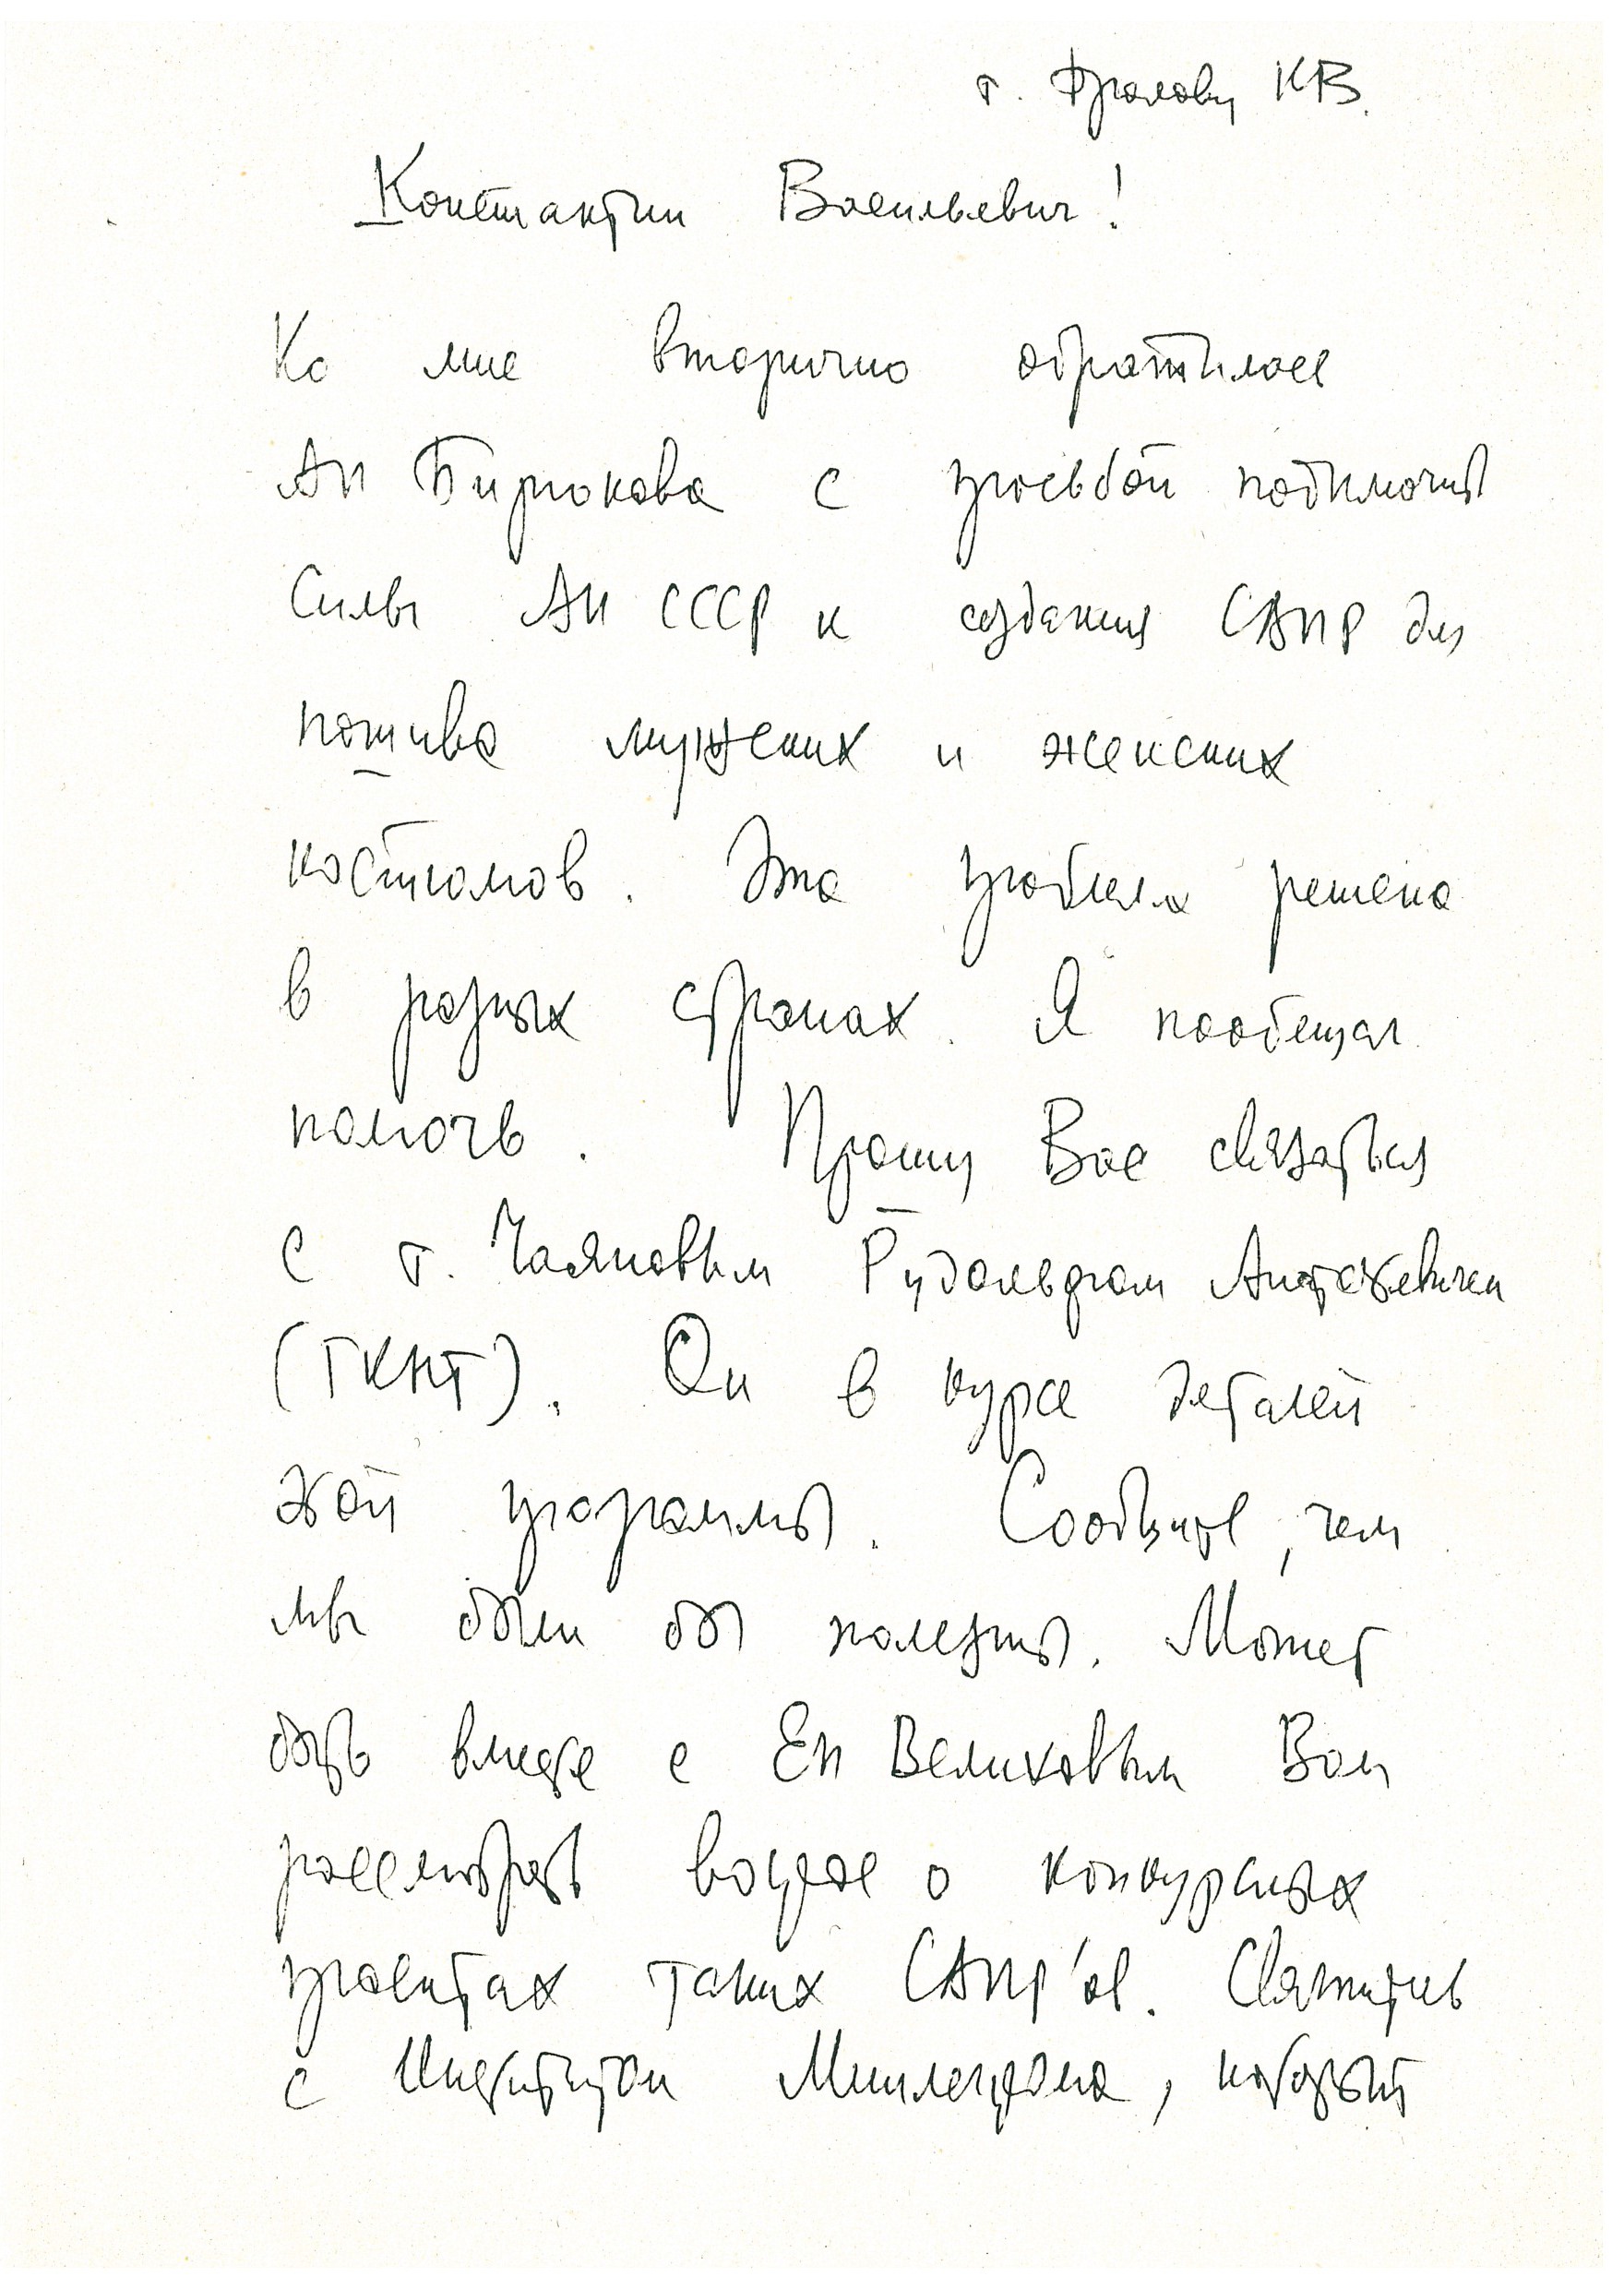 т. Фролову КВ.
Константин Васильевич!
Ко мне вторично обратилась
АП Бирюкова с просьбой подключить
силы АН СССР к созданию САПР для
пошива мужских и женских
костюмов. Эта проблема решена
в разных странах. Я пообещал
помочь. Прошу Вас связаться
с т. Чаяновым Рудольфом Анатольевичем
(ГКНТ). Он в курсе деталей
этой программы. Сообщите, чем
мы были бы полезны. Может
быть вместе с ЕП Велиховым Вам
рассмотреть вопрос о конкурсных
проектах таких САПР'ов. Свяжитесь
с Институтом Минлегпрома, который